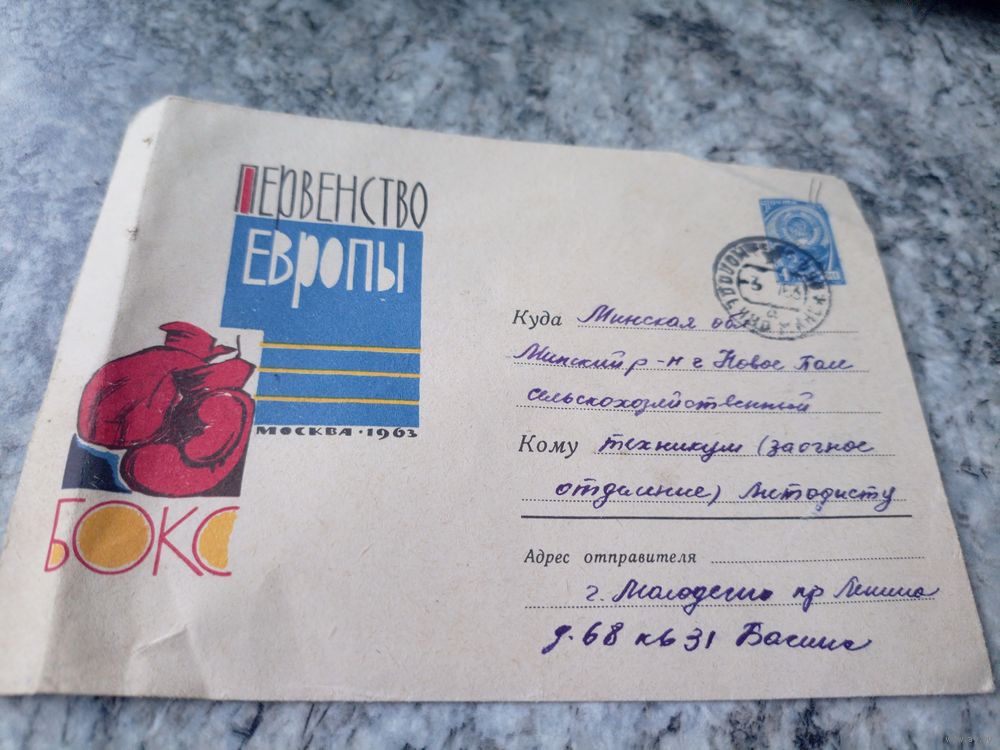 ПЕРВЕНСТВО
ЕВРОПЫ
МОСКВА · 1963
БОКС
Куда Минская обл
Минский р-н ч Новое Поле
сельскохозяйственный
Кому техникум (заочное
отделение) Методисту
Адрес отправителя
г. Молодечно пр Ленина
д. 68 кв 31